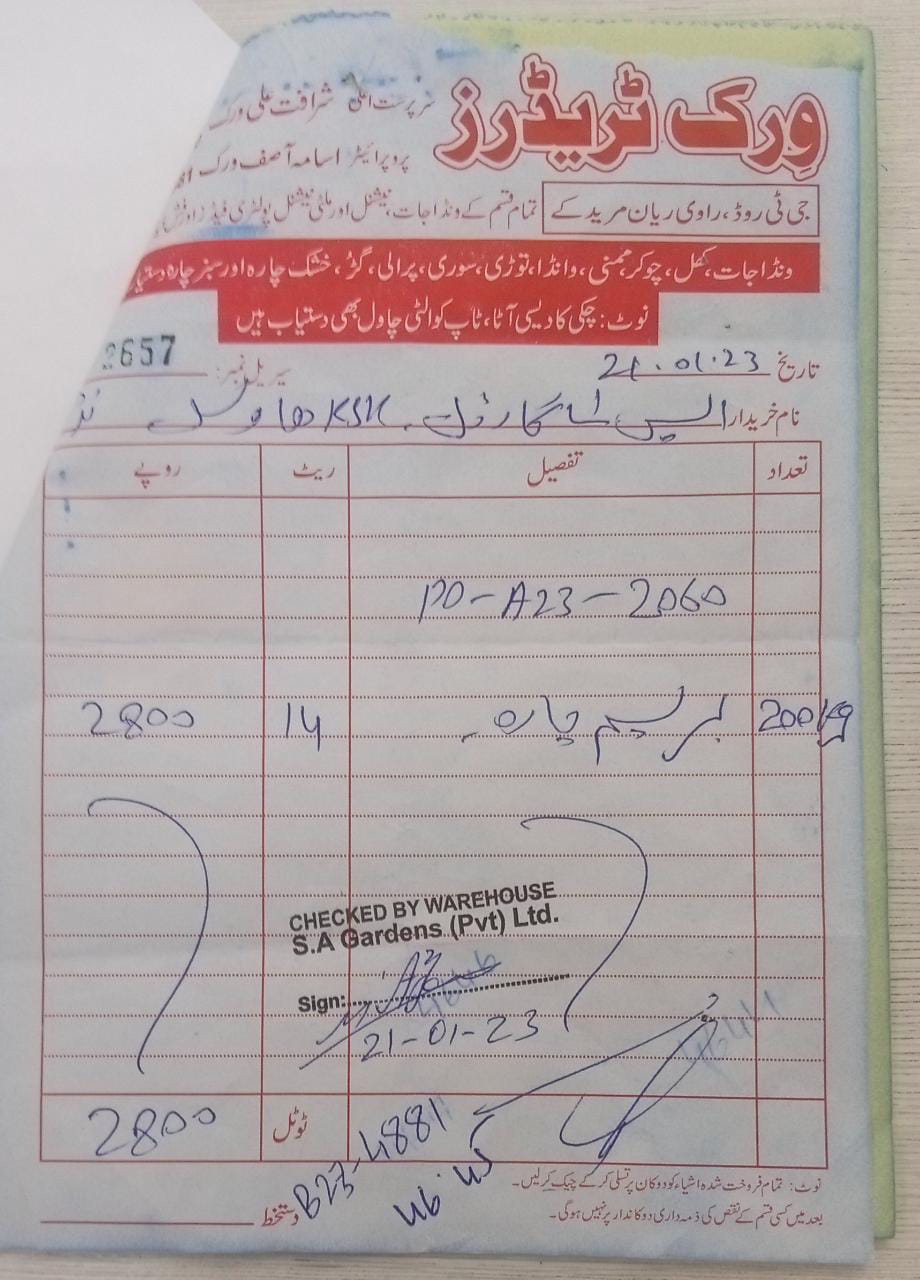 ورک ٹریڈرز
سرپرست اعلیٰ شرافت علی ورک
پروپرائیٹر اسامہ آصف ورک
جی ٹی روڈ، راوی ریان مریدکے
تمام قسم کے ونڈا جات، نیشنل اور ملٹی نیشنل پولٹری فیڈز اور فش
ونڈا جات، کھل، چوکر، ممنی، وانڈا، توڑی، سوری، پرالی، گڑ، خشک چارہ اور سبز چارہ دستیاب
نوٹ: چکی کا دیسی آٹا، ٹاپ کوالٹی چاول بھی دستیاب ہیں
تاریخ 21.01.23 سیریل نمبر: 2657
نام خریدار ایس اے گارڈن KSK ھاوس
تعداد تفصیل ریٹ روپے
PO-A23-2060
200 Kg برسیم چارہ 14 2800
CHECKED BY WAREHOUSE
S.A Gardens (Pvt) Ltd.
Sign:
21-01-23
4644
ٹوٹل 2800
B23-4881
4645
نوٹ: تمام فروخت شدہ اشیاء کو دوکان پر تسلی کر کے چیک کر لیں۔
بعد میں کسی قسم کے نقص کی ذمہ داری دوکاندار پر نہیں ہوگی۔
دستخط